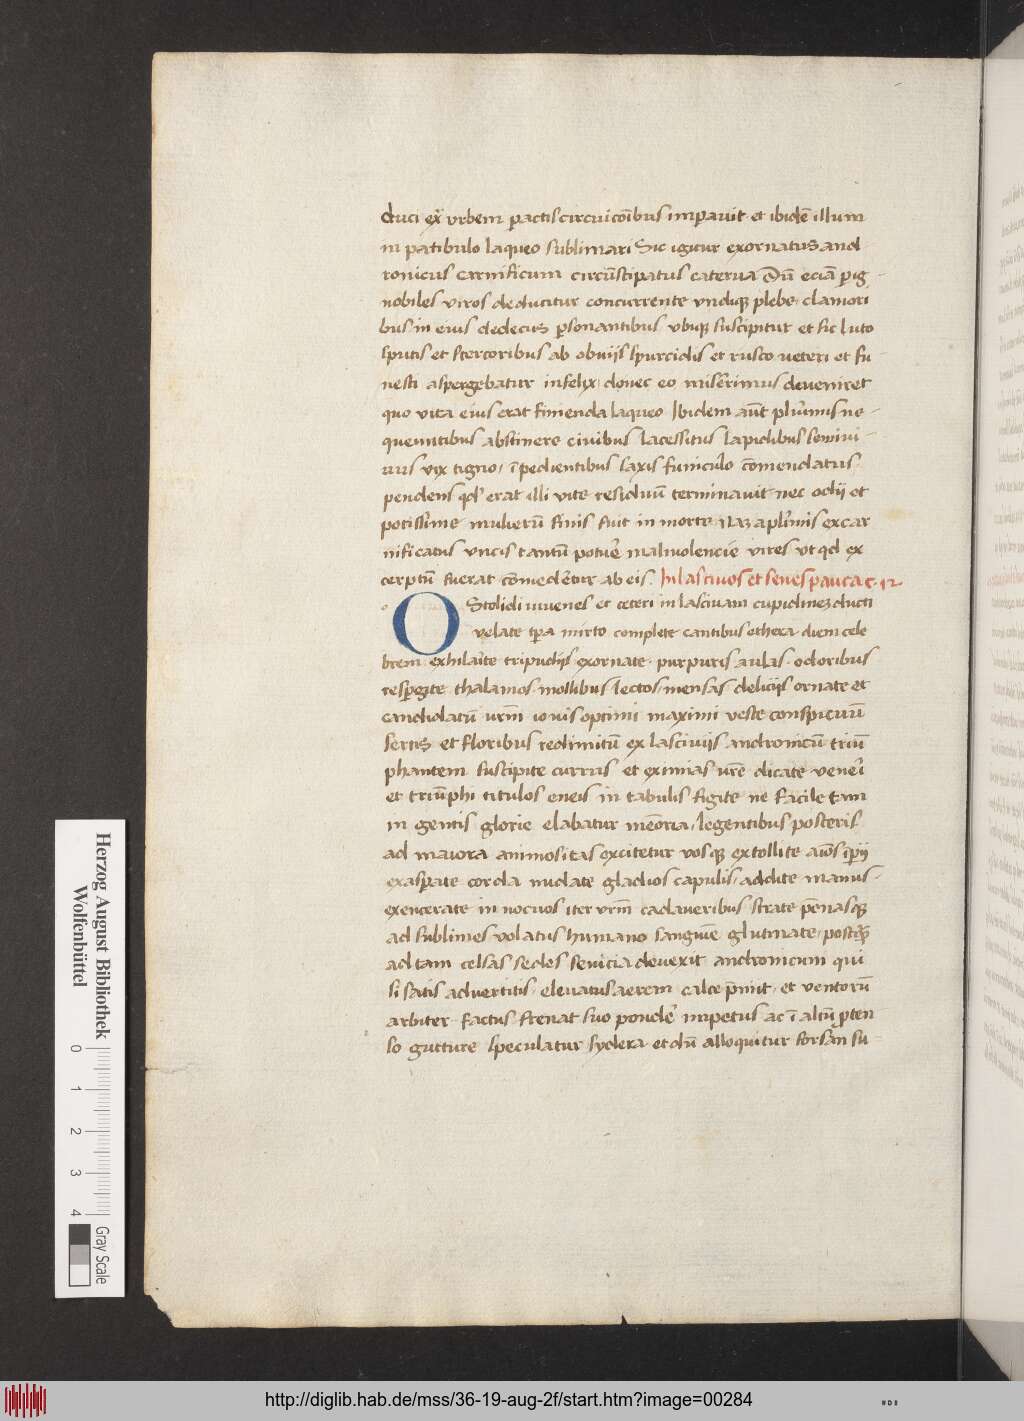 duci ex urbem pactis circuicōibus imparuit et ibidē illum
in patibulo laqueo sublimari Sic igitur exornatus and
ronicus carnificum circūstipatus caterua Dū eciā p ig-
nobiles viros deducitur concurrente undiqꝫ plebe, clamori
bus in eius dedecus psonantibus ubiqꝫ suscipitur et sic luto
sputis et stercoribus ab obuijs spurcidis et rusco ueteri et fu-
nesti aspergebatur infelix, donec eo miserrimus deueniret
quo vita eius erat finienda laqueo Ibidem aūt plurimis ne-
queuntibus abstinere ciuibus lacessitus lapidibus semiui-
uus vix tigno, īpedientibus saxis funiculo cōmendatus
pendens qd' erat illi vite residuū terminauit nec odij et
potissime mulierū finis fuit in morte Naꝫ a plimis excar
nificatus uncis tantū potuē maliuolencie vires ut qd ex
cerptū fuerat cōmederetur ab eis. In lasciuos et senes pauca c. 12
O Stolidi iuuenes et ceteri in lasciuam cupidineꝫ ducti
velate tpa mirto complete cantibus ethera diem cele
brem exhilarte tripudijs exornate purpuris aulas odoribus
respgite thalamos mollibus lectos, mensas delicijs ornate et
candidatū urm̄ iouis optimi maximi veste conspicuū
sertis et floribus redimitū ex lasciuijs andronicū triū
phantem suscipite currus et eximias ur̄e dicate veneri
et triūphi titulos eneis in tabulis figite ne facile tam
in gentis glorie elabatur mēoria, legentibus posteris
ad maiora animositas excitetur vos qꝫ extollite aīos īpij
exasperate corda nudate gladios capulis, addite manus-
exercerate in nocuos iter urm̄ cadaueribus strate pēnasqꝫ
ad sublimes volatus humano sanguīe glutinate, postqꝫ
ad tam celsas sedes seuicia deuexit andronicum qui
si satis aduertitis, eleuatus aerem calce pmit, et ventorū
arbiter factus frenat suo pondere impetus ac ī altū pten
so gutture speculatur sydera et dū alloquitur forsan su-
Herzog August Bibliothek
Wolfenbüttel
0 1 2 3 4
Gray Scale
http://diglib.hab.de/mss/36-19-aug-2f/start.htm?image=00284